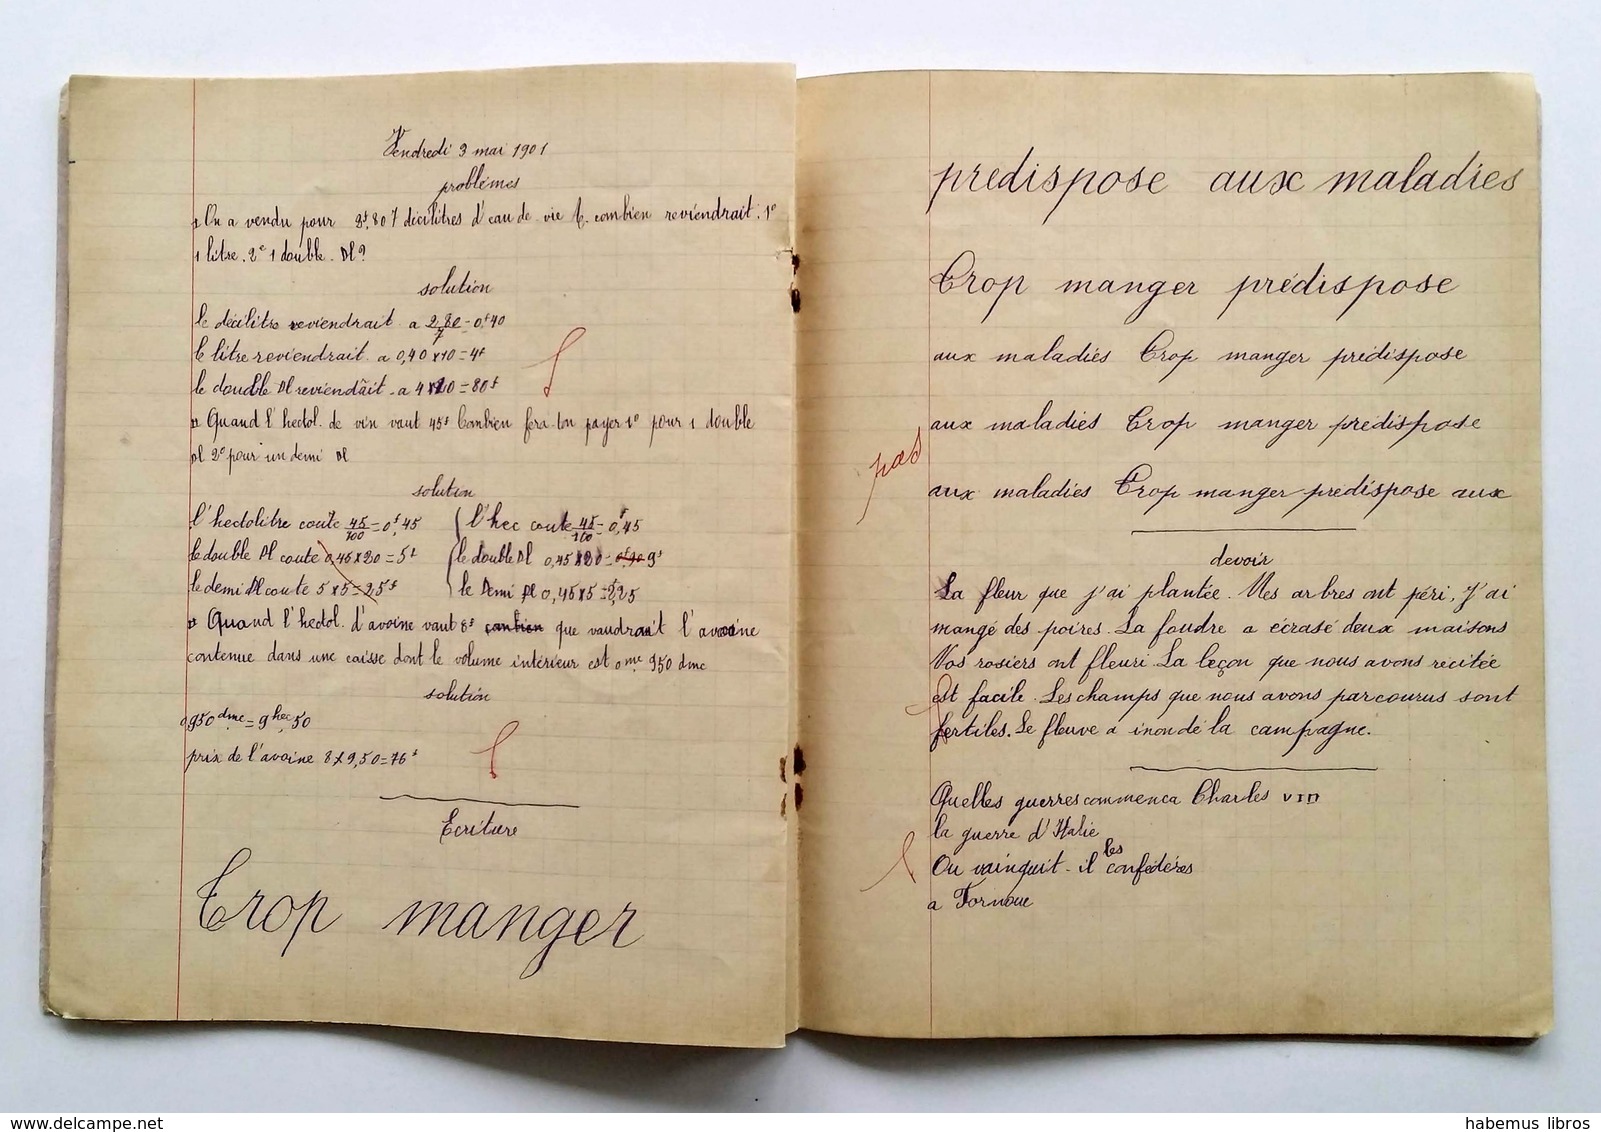 Vendredi 3 mai 1901
problèmes
1 On a vendu pour 2f,80 7 décilitres d'eau de vie combien reviendrait. 1º
1 litre. 2e 1 double. Dl?
solution
le décilitre reviendrait a 2,80/7 = 0,f40
le litre reviendrait a 0,40 x 10 = 4f
le double Dl reviendrait a 4 x 20 = 80f
Quand l'hectol. de vin vaut 45f Combien fera ton payer 1º pour 1 double
Dl 2º pour un demi Dl
solution
l'hectolitre coute 45/100 = 0,f45 l'hec coute 45/100 = 0,f45
le double Dl coute 0,45 x 20 = 5f le double Dl 0,45 x 20 = 0f,90 9f
le demi Dl coute 5 x 5 = 25f le Demi Dl 0,45 x 5 = 2,25
Quand l'hectol. d'avoine vaut 8f combien que vaudrait l'avoine
contenue dans une caisse dont le volume intérieur est 0mc 950 dmc
solution
0,950 dmc = 9hec,50
prix de l'avoine 8 x 9,50 = 76f
Ecriture
Trop manger
predispose aux maladies
Trop manger prédispose
aux maladiés Trop manger prédispose
pas
aux maladiés Trop manger prédispose
aux maladiés Trop manger prédispose aux
devoir
La fleur que j'ai plantée. Mes arbres ont péri, J'ai
mangé des poires. La foudre a écrasé deux maisons
Vos rosiers ont fleuri. La leçon que nous avons récitée
est facile. Les champs que nous avons parcourus sont
fertiles. Le fleuve a inondé la campagne.
Quelles guerres commenca Charles VIII
la guerre d'Italie
Ou vainquit-il les confédérés
a Fornoue
habemus libros